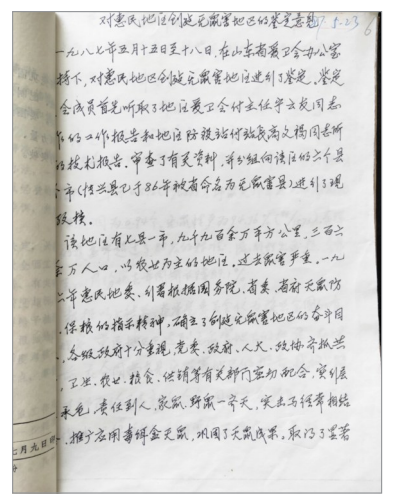 对惠民地区创建无鼠害地区的鉴定意见 87.5.23 6
一九八七年五月十五日至十八日,在山东省爱卫会办公室
持下,对惠民地区创建无鼠害地区进行了鉴定。鉴定
会成员首先听取了地区爱卫会付主任 友同志
作的工作报告和地区防疫站付站长高文福同志所
的技术报告。审查了有关资料,并分组向该区的六个县
市(博兴县已于86年被省命名为无鼠害县)进行了现
考核。
该地区有七县一市,九千九百余万平方公里,三百六
余万人口,以农业为主的地区,过去鼠害严重。一九八
六年惠民地委、行署根据国务院、省委、省府灭鼠防
、保粮的指示精神,确立了创建无鼠害地区的奋斗目
,各级政府十分重视,党委、政府、人大、政协、齐抓共
,卫生、农业、粮食、供销等有关部门密切配合,实行层
承包,责任到人,家鼠、野鼠一齐灭,突击与经常相结
,推广应用毒饵盒灭鼠,巩固了灭鼠成果。取得了显著
七月九日印